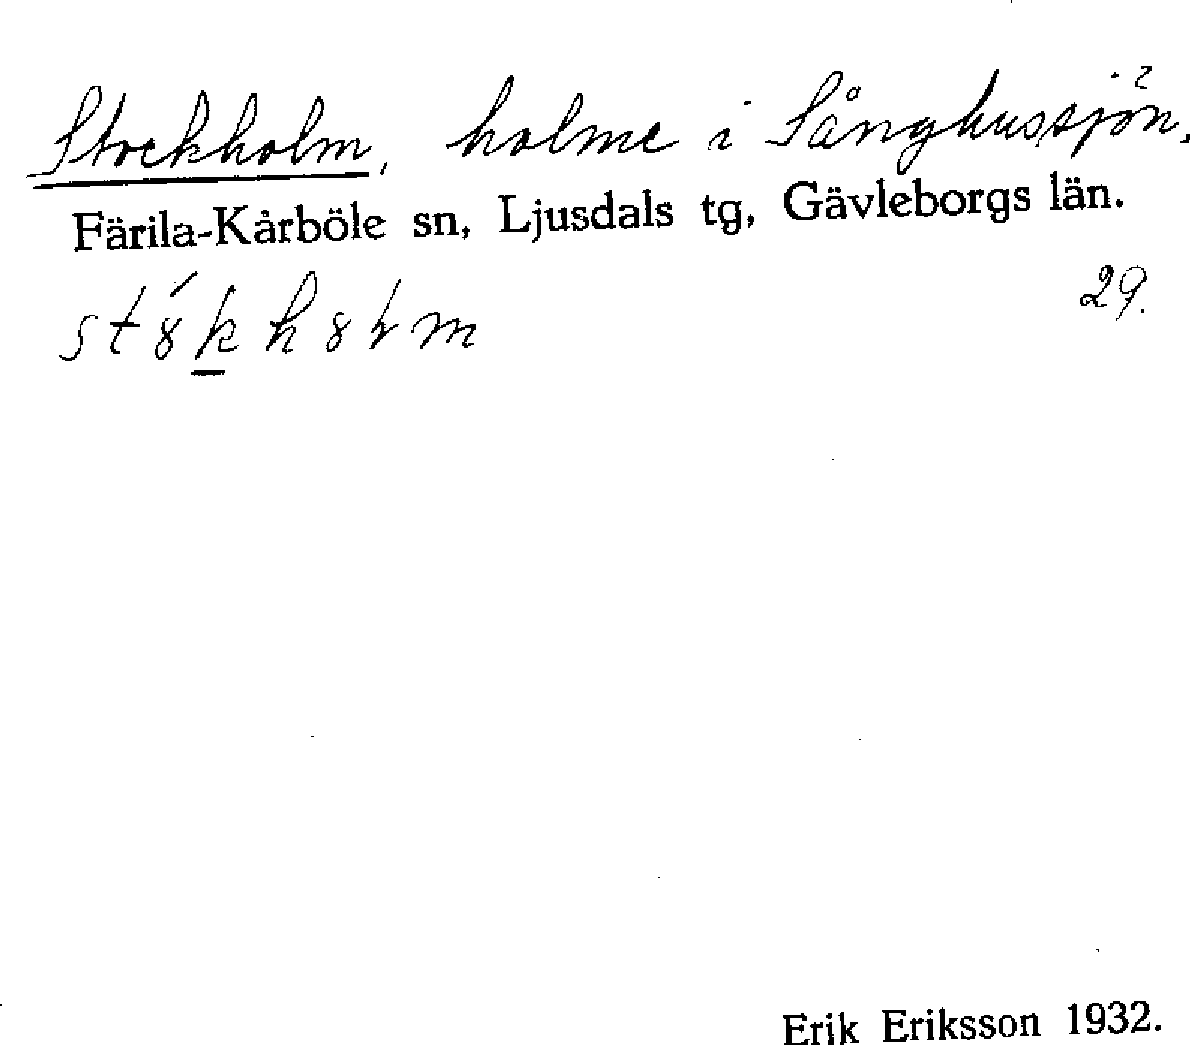 Stockholm, holme i Sånghussjön.
Färila-Kårböle sn, Ljusdals tg, Gävleborgs län.
29.
Erik Eriksson 1932.